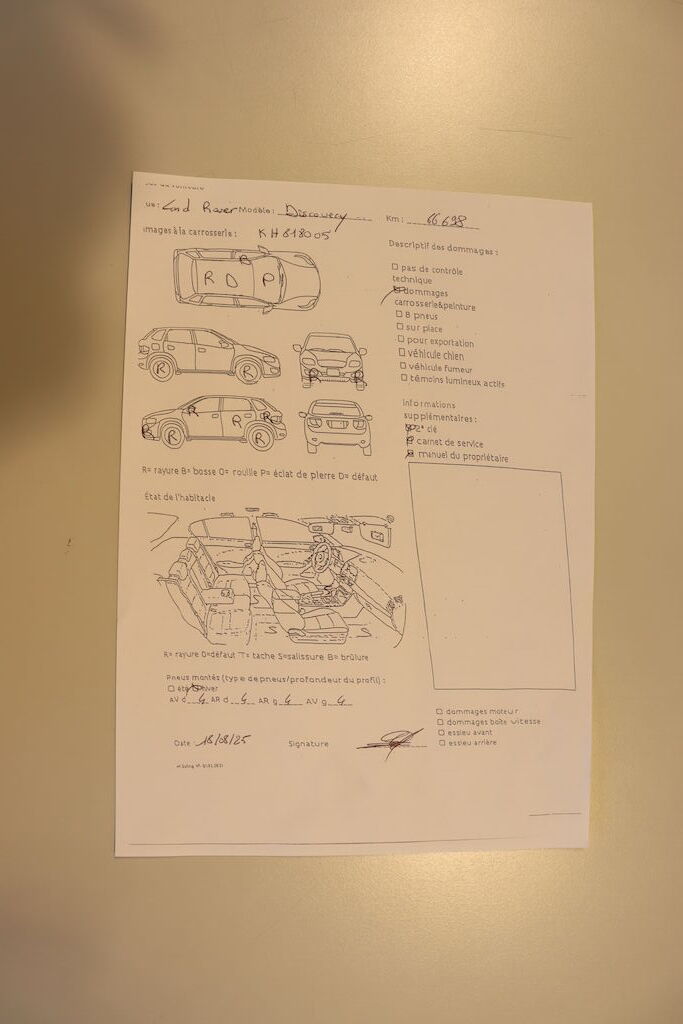 ue: Land Rover Modèle: Discovery Km: 66 698
mages à la carrosserie: KH818005
B
R D P
R R
R R
R R R
R R R
R= rayure B= bosse O= rouille P= éclat de pierre D= défaut
État de l'habitacle
S S
R= rayure O=défaut T= tache S=salissure B= brûlure
Pneus montés (type de pneus/profondeur du profil) :
été hiver
AV d 4 AR d 4 AR g 4 AV g 4
Date 18/08/25 Signature
Descriptif des dommages :
pas de contrôle
technique
dommages
carrosserie&peinture
8 pneus
sur place
pour exportation
véhicule chien
véhicule fumeur
témoins lumineux actifs
Informations
supplémentaires :
2e clé
carnet de service
manuel du propriétaire
dommages moteur
dommages boîte vitesse
essieu avant
essieu arrière